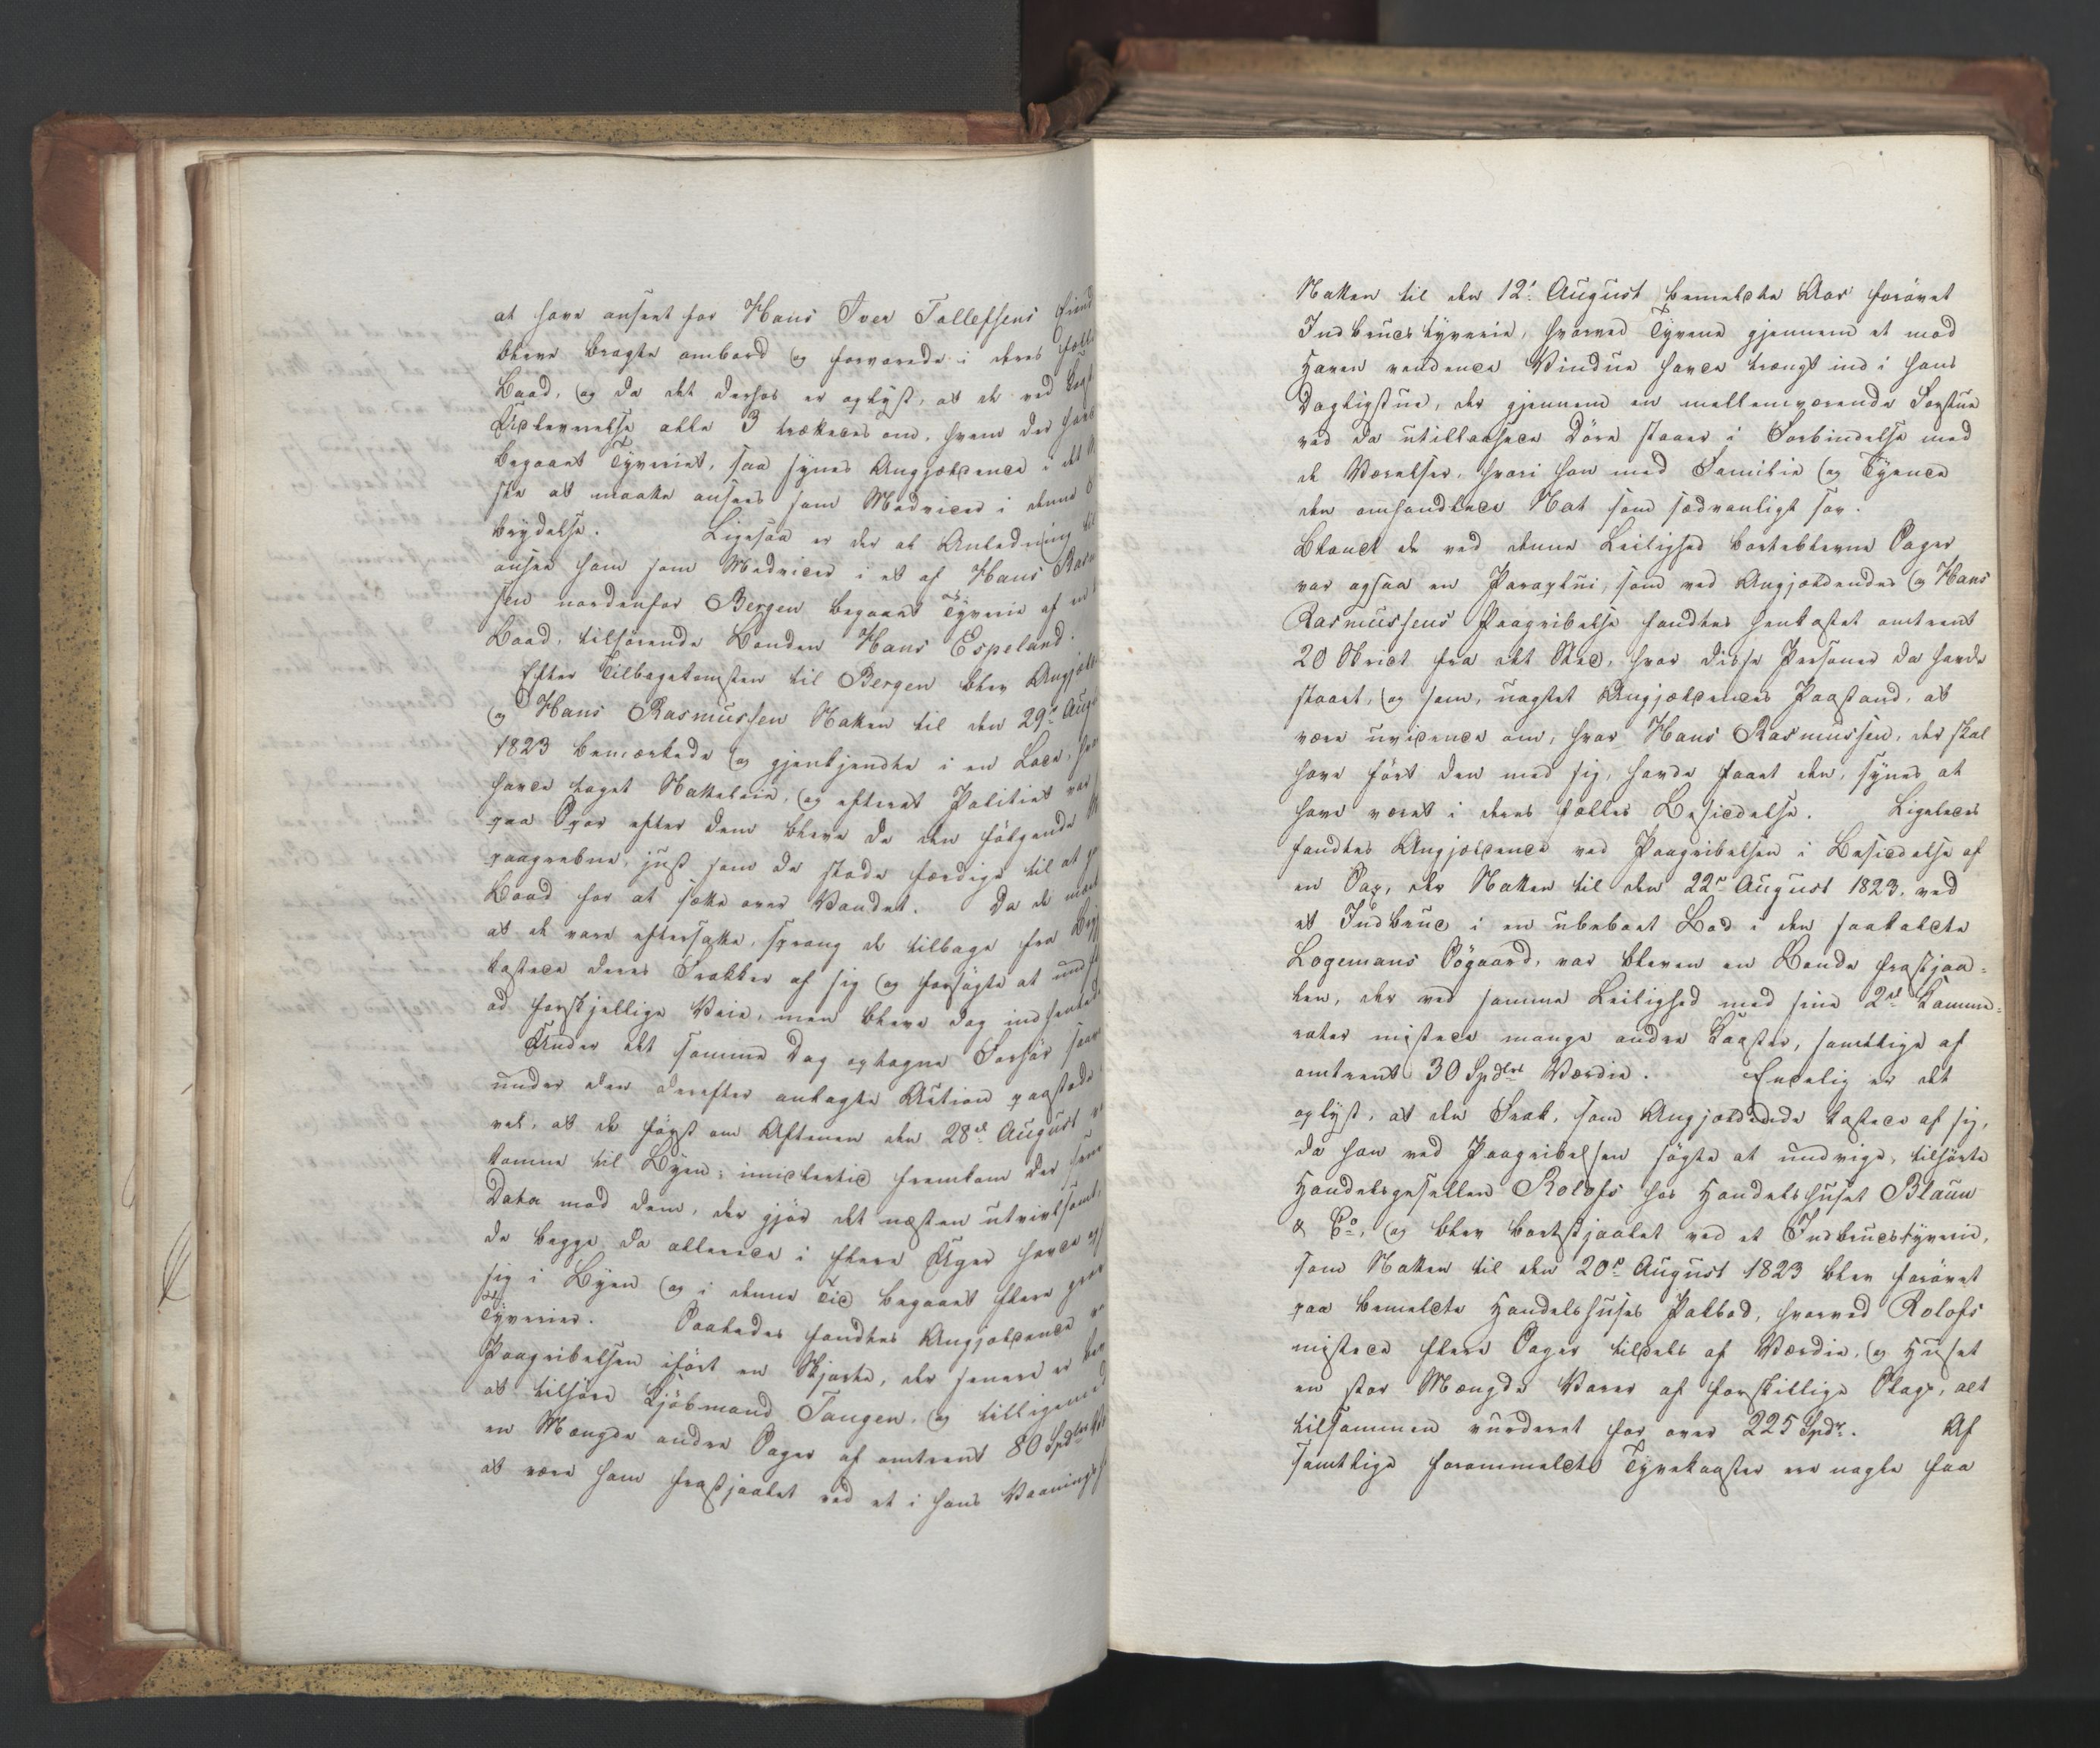 at have anseet for Hans Iver Tollefsens Eiend
bleve bragte ombord og forvarede i deres fælle
Baad, og da det derhos er oplyst, at de ved
Udleverelse alle 3 trættedes om, hvem der havde
begaaet Tyveriet, saa synes Angjældende i det
ste at maatte ansees som Medvider i denne
brydelse. Ligesaa er der al Anledning til
ansee ham som Medvider i et af Hans Rasmus
sen nordenfor Bergen begaaet Tyverie af en
Baad, tilhørende Bonden Hans Espeland.
Efter Tilbagekomsten til Bergen blev Angjæld
og Hans Rasmussen Natten til den 29de Augu
1823 bemærkede og gjenkjendte i en Lade, hvor
havde taget Natteleie, og efterat Politiet var
paa Spor efter dem bleve de den følgende
paagrebne, just som de stode færdige til at
Baad for at sætte over Vandet. Da de mær
at de vare eftersatte, sprang de tilbage fra
kastede deres Frakker af sig og forsøgte at und
ad forskjellige Veie, men bleve dog indhentede
Under det samme Dag optagne Forhør saa
under den derefter anlagte Action paastode
vel, at de først om Aftenen den 28de August
komne til Byen; imidlertid fremkom der
Data mod dem, der gjør det næsten utvivlsomt,
de begge da allerede i flere Uger havde op
sig i Byen og i denne Tid begaaet flere grov
Tyverier. Saaledes fandtes Angjældende
Paagribelsen iført en Skjorte, der senere er
at tilhøre Kjøbmand Tangen, og tilligemed
en Mængde andre Sager af omtrent 80 Spdlrs
at være ham frastjaalet ved et i hans Vaanings
Natten til den 12te August bemeldte Aar forøvet
Indbrudstyverie, hvorved Tyvene gjennem et mod
Haven vendende Vindue havde trængt ind i hans
Dagligstue, der gjennem en mellemværende Forstue
ved da utillaasede Døre staaer i Forbindelse med
de Værelser, hvori han med Familie og Tyende
den omhandlede Nat som sædvanligt sov.
Blandt de ved denne Leilighed bortblevne Sager
var ogsaa en Paraplui, som ved Angjældendes og Hans
Rasmussens Paagribelse fandtes henkastet omtrent
20 Skridt fra det Sted, hvor disse Personer da havde
staaet, og som, uagtet Angjældendes Paastand, at
være uvidende om, hvor Hans Rasmussen, der skal
have ført den med sig, havde faaet den, synes at
have været i deres fælles Besiddelse. Ligeledes
fandtes Angjældende ved Paagribelsen i Besiddelse af
en Sax, der Natten til den 22de August 1823, ved
et Indbrud i en ubeboet Bod i den saakaldte
Logemans Søgaard, var bleven en Bonde frastjaa=
len, der ved samme Leilighed med sine 2de Kamme=
rater mistede mange andre Kaaster, samtlige af
omtrent 30 Spdlrs Værdie. Endelig er det
oplyst, at den Frak, som Angjældende kastede af sig,
da han ved Paagribelsen søgte at undvige, tilhørte
Handelsgesellen Rolofs hos Handelshuset Blaun
& Co, og blev bortstjaalet ved et Indbrudstyverie,
som Natten til den 20de August 1823 blev forøvet
paa bemeldte Handelshuses Pakbod, hvorved Rolofs
mistede flere Sager tildels af Værdie, og Huset
en stor Mængde Varer af forskillige Slags, alt
tilsammen vurderet for over 225 Spdr. Af
samtlige forommeldte Tyvekaaster ere nogle faa